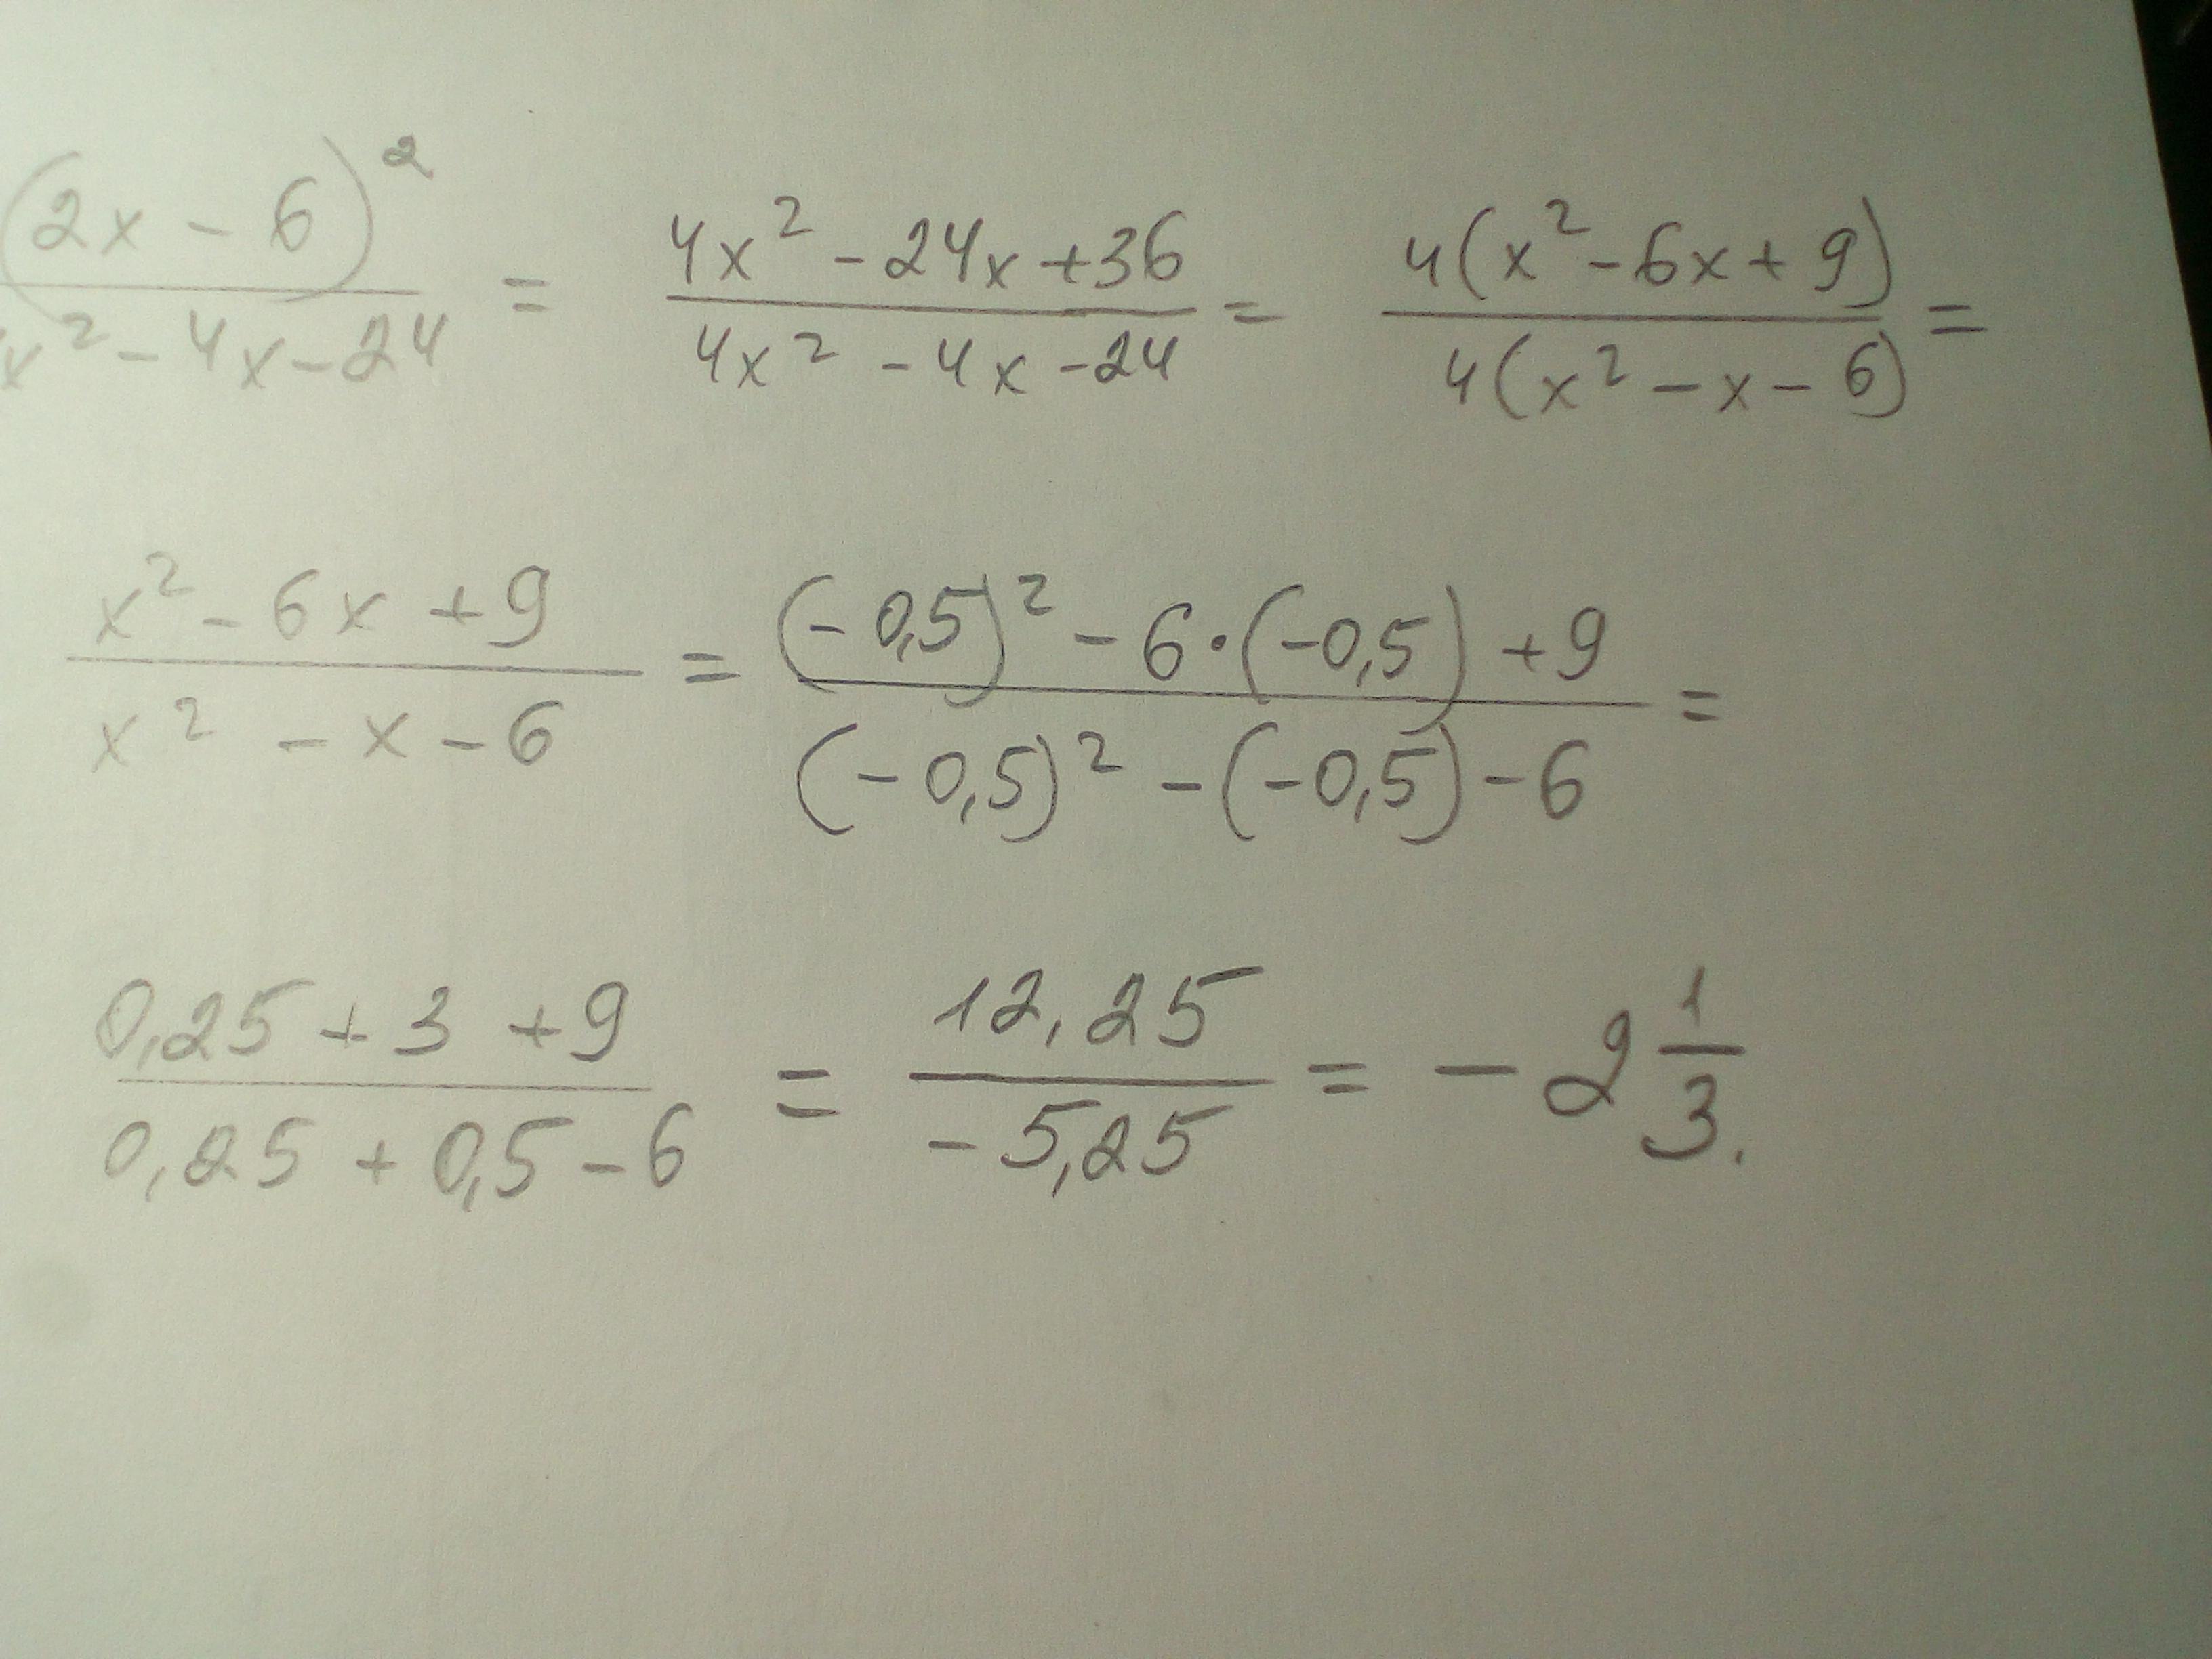 (2x - 6)² / x² - 4x - 24 = 4x² - 24x + 36 / 4x² - 4x - 24 = 4(x² - 6x + 9) / 4(x² - x - 6) =
x² - 6x + 9 / x² - x - 6 = (-0,5)² - 6·(-0,5) + 9 / (-0,5)² - (-0,5) - 6 =
0,25 + 3 + 9 / 0,25 + 0,5 - 6 = 12,25 / -5,25 = -2 1/3.